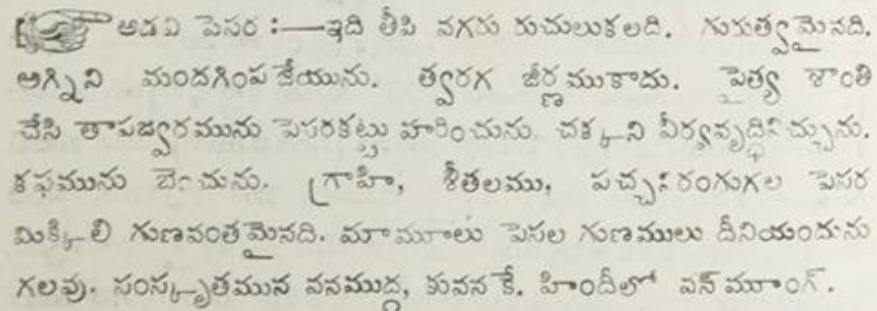 అడవి పెసర :—ఇది తీపి వగరు రుచులుకలది. గురుత్వమైనది.
అగ్నిని మందగింప జేయును. త్వరగ జీర్ణముకాదు. పైత్య శాంతి
చేసి తాపజ్వరమును పెసరకట్టు హరించును. చక్కని వీర్యవృద్ధినిచ్చును.
కఫమును బెంచును. గ్రాహి, శీతలము, పచ్చనిరంగుగల పెసర
మిక్కిలి గుణవంతమైనది. మామూలు పెసల గుణములు దీనియందును
గలవు. సంస్కృతమున వనముద్గ, హిందీలో వన్ మూంగ్.